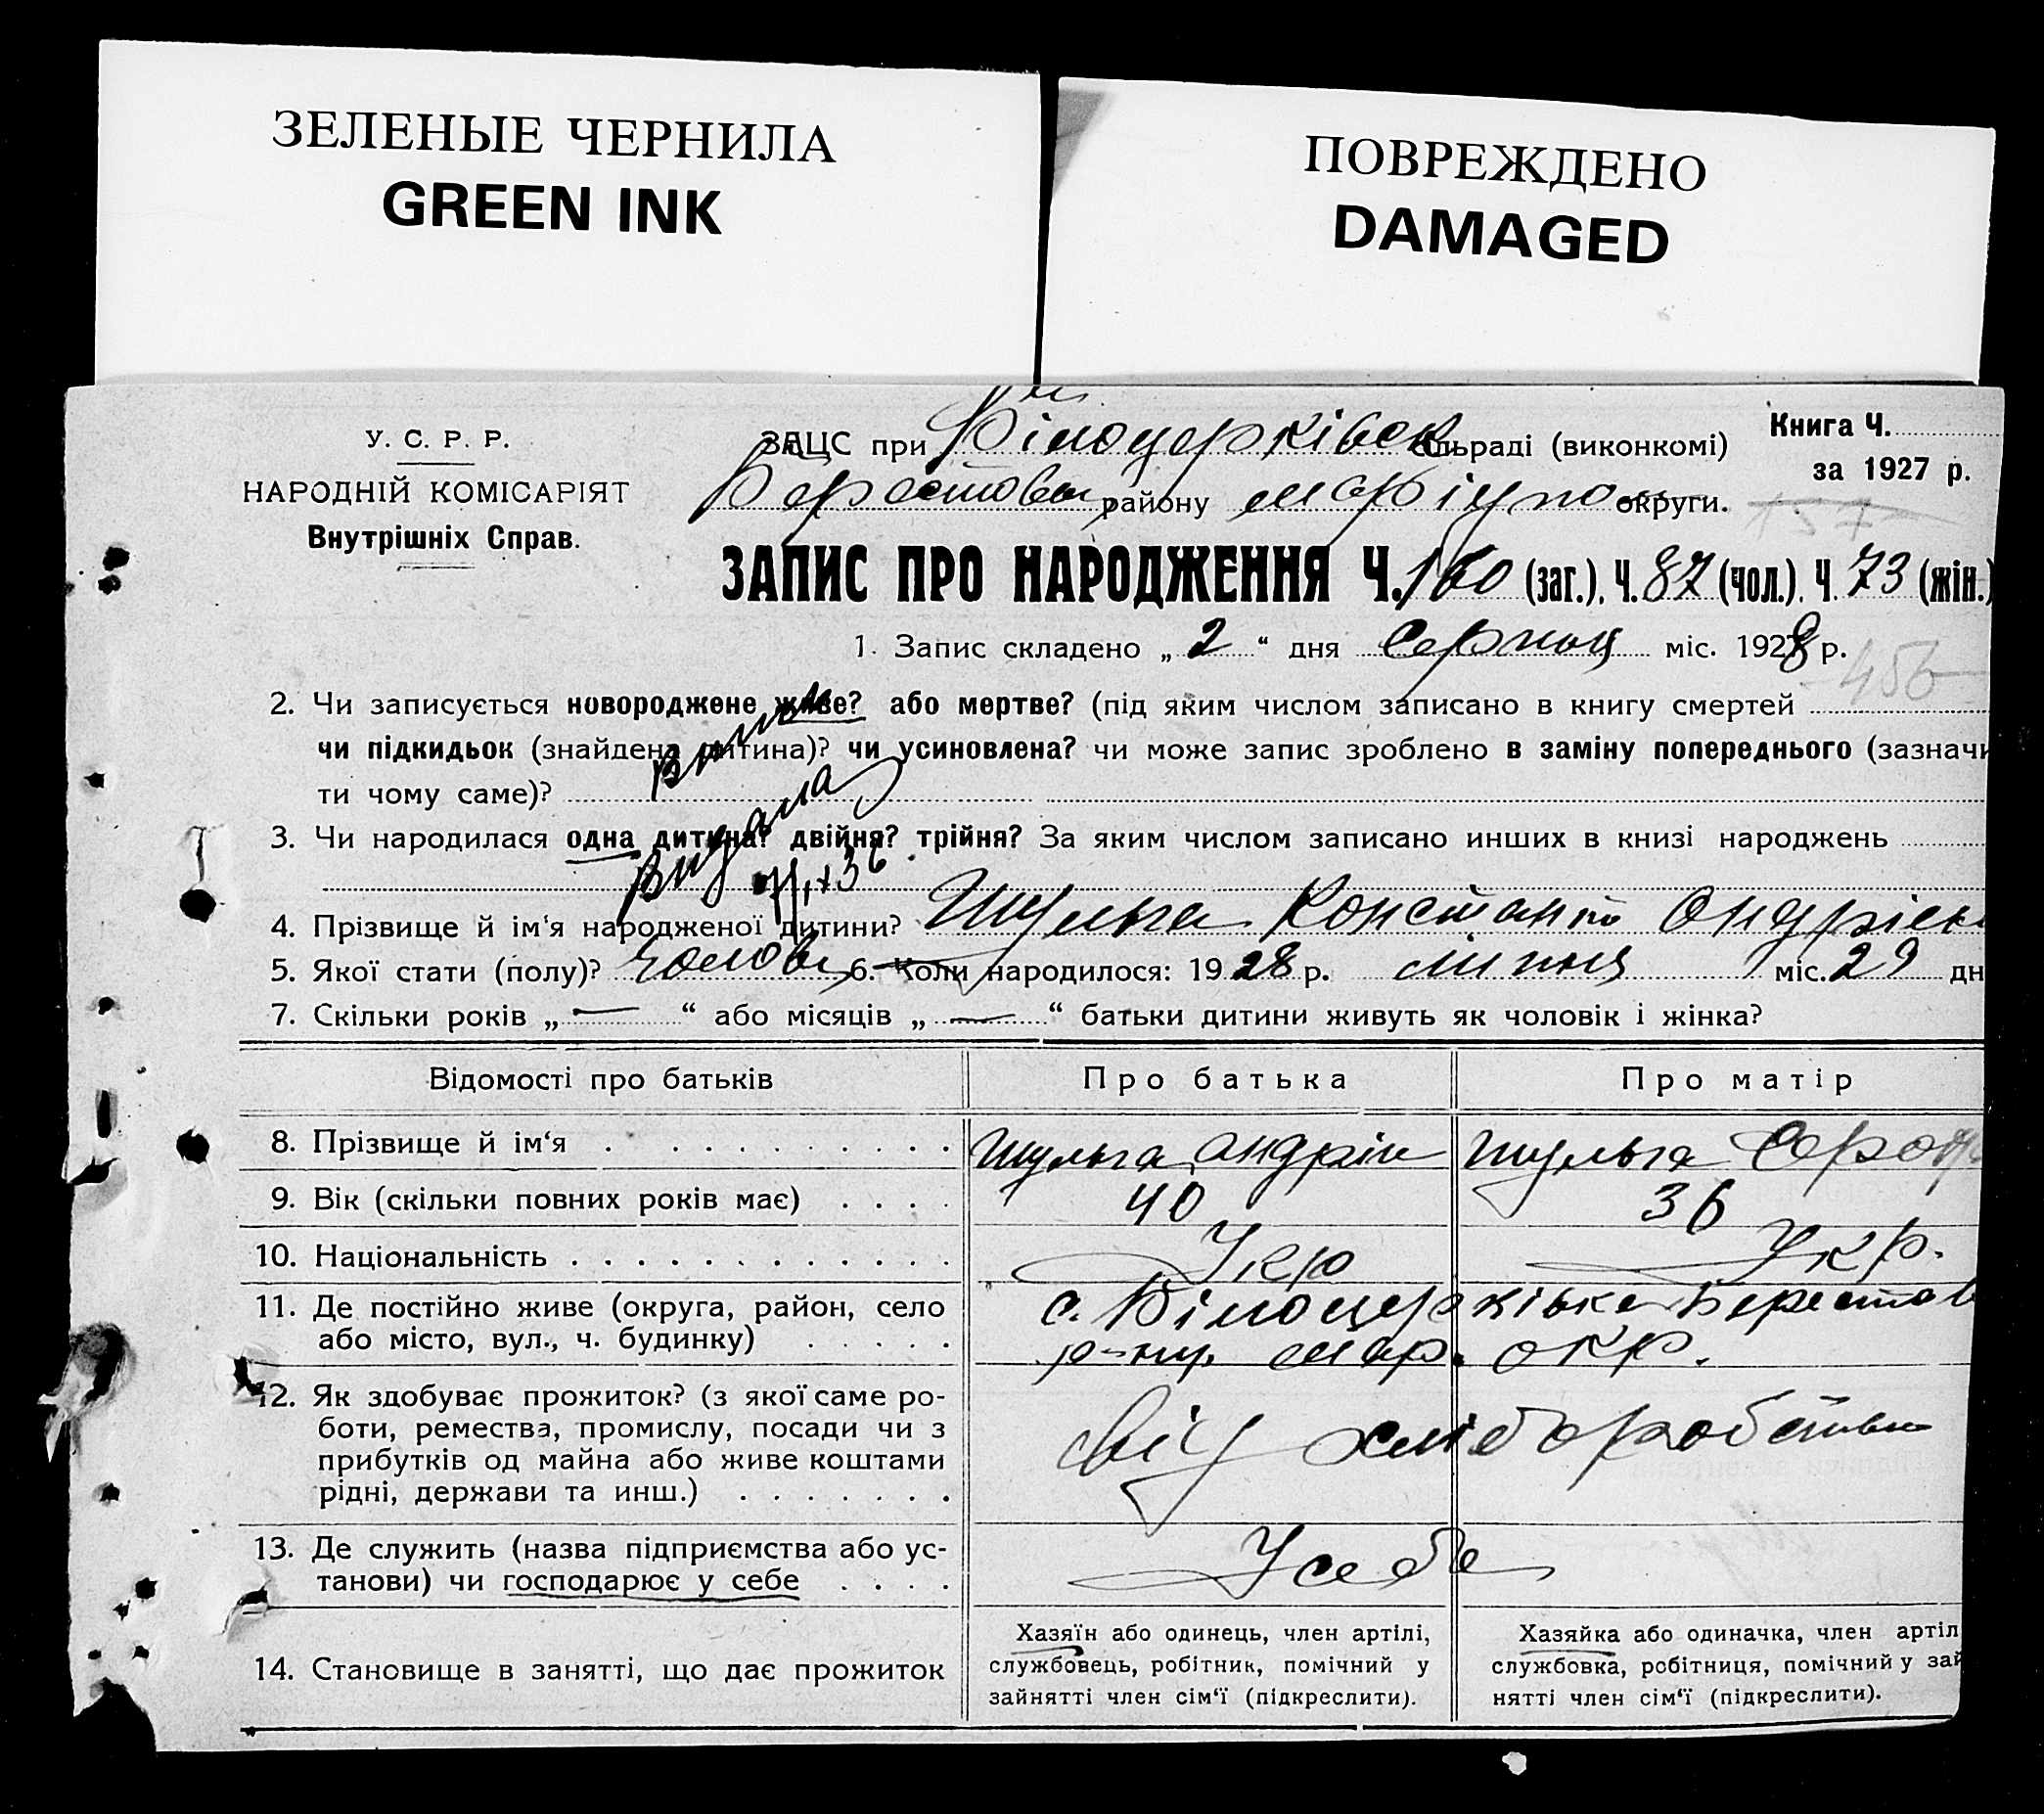 ЗЕЛЕНЫЕ ЧЕРНИЛА
GREEN INK
ПОВРЕЖДЕНО
DAMAGED
У. С. Р. Р.
НАРОДНІЙ КОМІСАРІЯТ
Внутрішніх Справ.
ЗАЦС при Білоцерківск сільраді (виконкомі)
Берестовськ району Маріупо округи.
Книга Ч.
за 1927 р.
157
ЗАПИС ПРО НАРОДЖЕННЯ Ч. 160 (заг.), Ч. 87 (чол.), Ч. 73 (жін.)
1. Запис складено „ 2 “ дня Серпня міс. 1928 р.
456
2. Чи записується новороджене живе? або мертве? (під яким числом записано в книгу смертей
чи підкидьок (знайдена дитина)? чи усиновлена? чи може запис зроблено в заміну попереднього (зазначи
ти чому саме)?
3. Чи народилася одна дитина? двійня? трійня? За яким числом записано инших в книзі народжень
4. Прізвище й ім‘я народженої дитини? Шульга Констант Ондрієв
5. Якої стати (полу)? Чолов 6. Коли народилося: 1928 р. липня міс. 29 дн
7. Скільки років „ — “ або місяців „ — “ батьки дитини живуть як чоловік і жінка?
Відомості про батьків Про батька Про матір
8. Прізвище й ім‘я Шульга Андрій Шульга
9. Вік (скільки повних років має) 40 36
10. Національність Укр Укр.
11. Де постійно живе (округа, район, село с. Білоцерківка Берестов
або місто, вул., ч. будинку) р-ну Мар. окр.
12. Як здобуває прожиток? (з якої саме ро-
боти, ремества, промислу, посади чи з
прибутків од майна або живе коштами
рідні, держави та инш.)
від хліборобства
13. Де служить (назва підприємства або ус-
танови) чи господарює у себе
У себе
14. Становище в занятті, що дає прожиток
Хазяїн або одинець, член артілі,
службовець, робітник, помічний у
зайнятті член сім‘ї (підкреслити).
Хазяйка або одиначка, член артіл
службовка, робітниця, помічний у зай
нятті член сім‘ї (підкреслити).